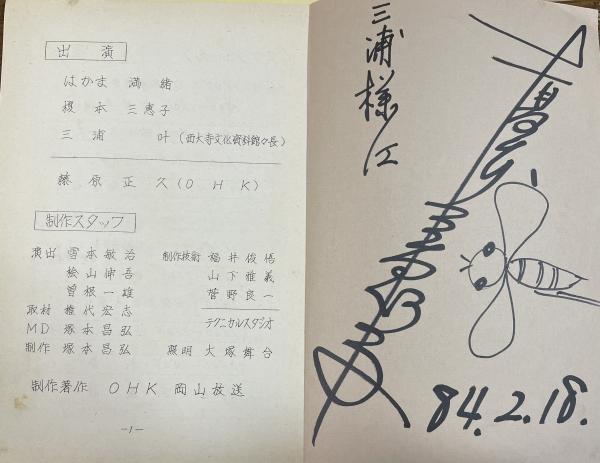 出演
はかま 満緒
榎本 三恵子
三浦 叶 (西大寺文化資料館々長)
藤原 正久 (OHK)
制作スタッフ
演出 雪本敏治
桧山伸吾
曽根一雄
取材 権代宏志
MD 塚本昌弘
制作 塚本昌弘
制作技術 福井俊悟
山下雅義
菅野良一
テクニカルスタジオ
照明 大塚舞台
制作著作 OHK 岡山放送
-1-
三浦様江
84.2.18.